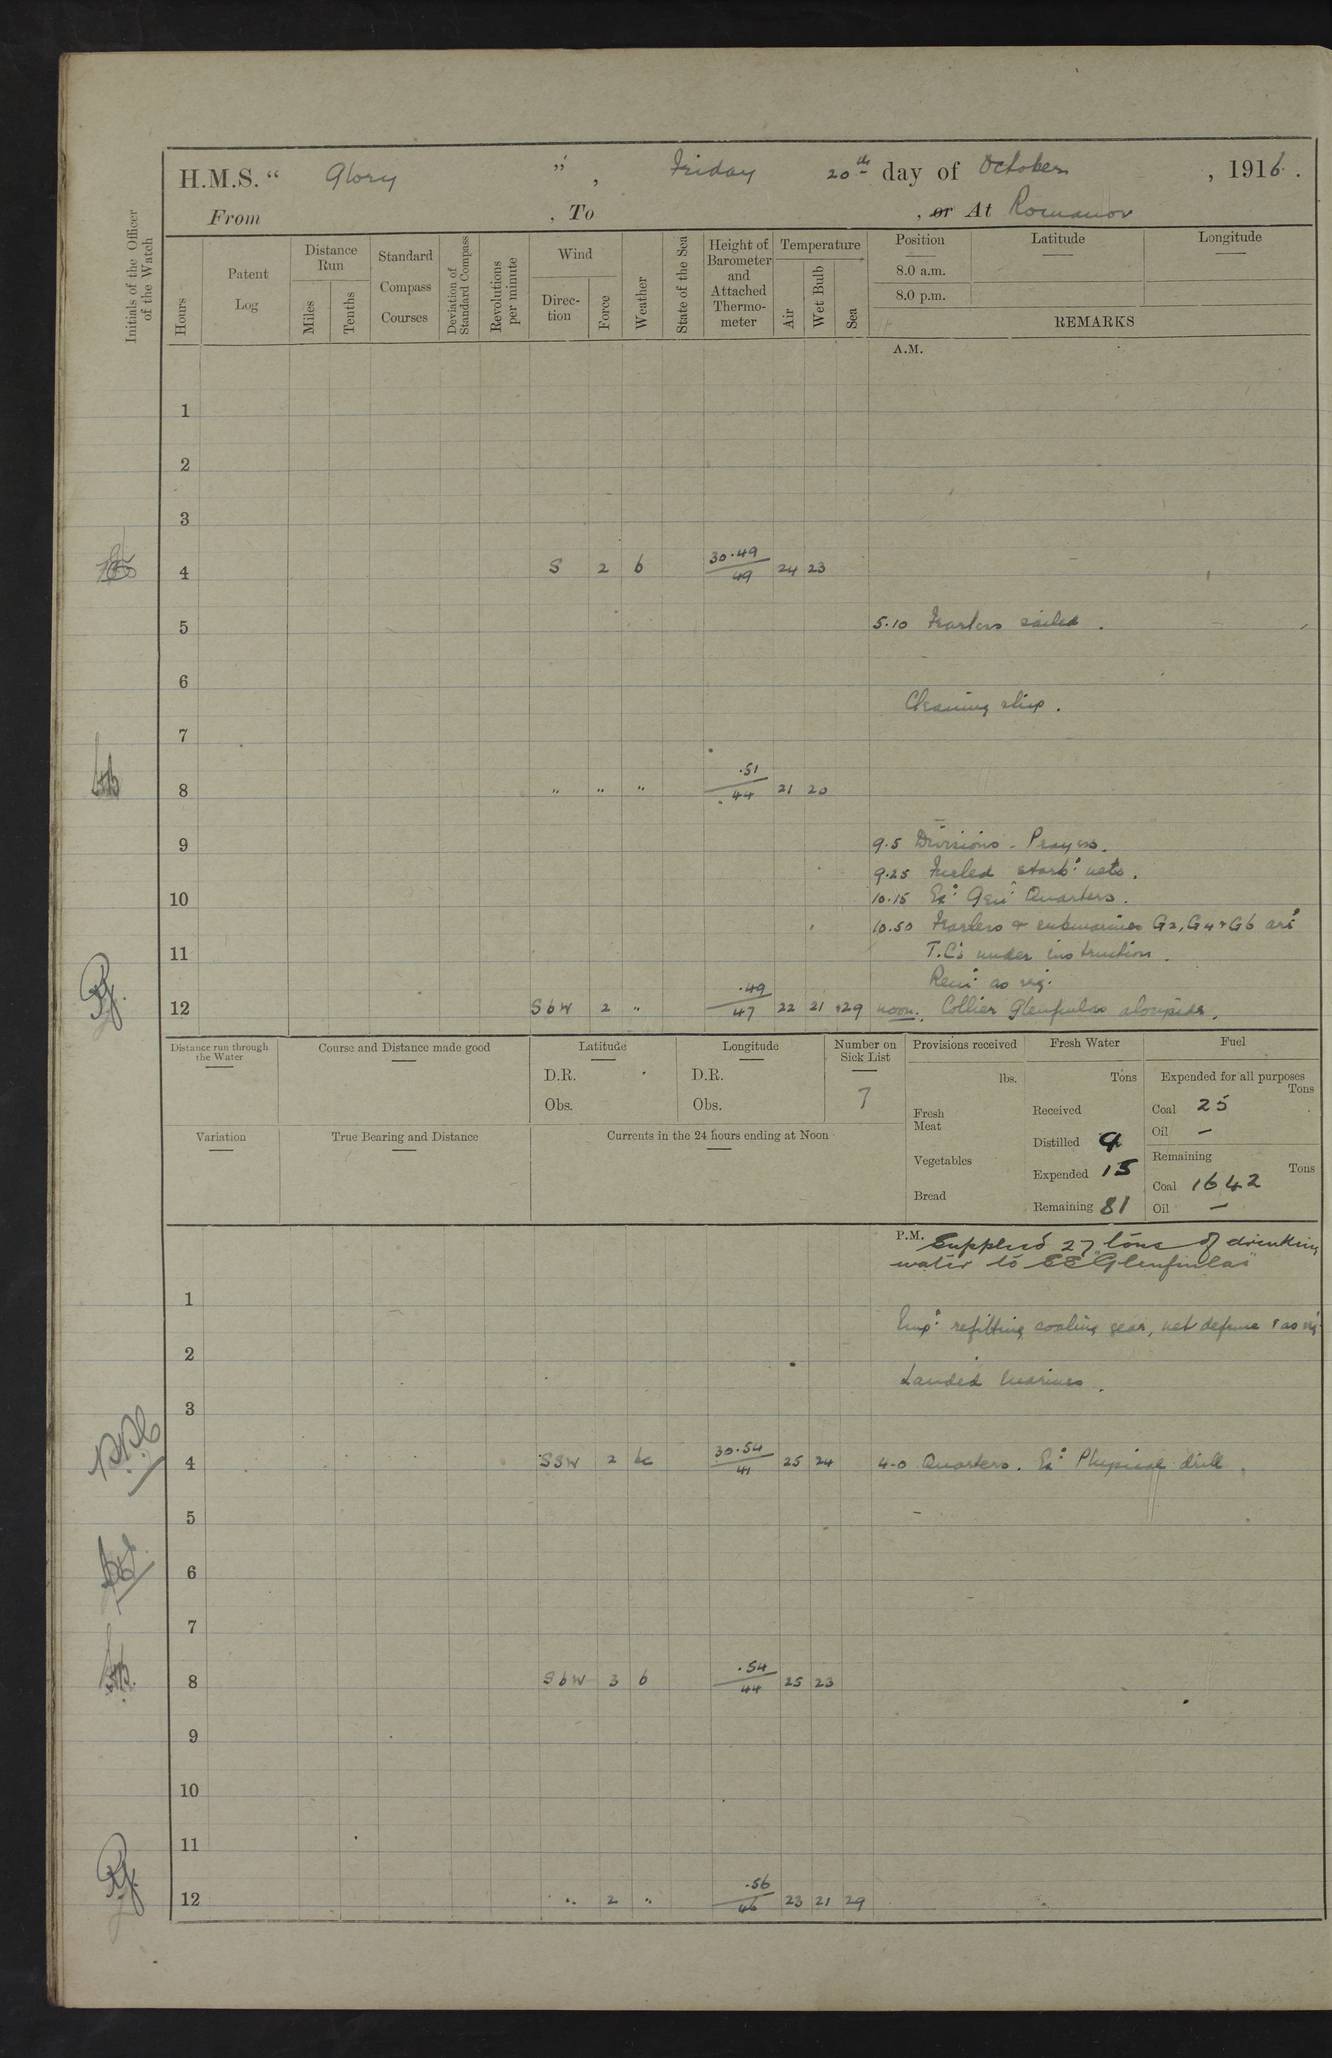 H.M.S. “ Glory ” , Friday 20th day of October , 1916 .
From , To , or At Romanov
Initials of the Officer of the Watch
Hours
Patent Log
Distance Run
Miles
Tenths
Standard Compass Courses
Deviation of Standard Compass
Revolutions per minute
Wind
Direc- tion
Force
Weather
State of the Sea
Height of Barometer and Attached Thermo- meter
Temperature
Air
Wet Bulb
Sea
Position
8.0 a.m.
8.0 p.m.
Latitude
Longitude
REMARKS
A.M.
1
2
3
4 S 2 b 30.49 49 24 23
5 5.10 sailed .
6
Cleaning ship .
7
8 " " " .51 44 21 20
9 9.5 Divisions - Prayers.
9.25 Furled starbd nets .
10 10.15 Exd Genl Quarters .
10.50 & submarines G2, G4 & G6 arrd
11 T.C's under instruction .
Remr as req.
12 SbW 2 " .49 47 22 21 29 noon. Collier Glenfinlas alongside .
Distance run through the Water
Course and Distance made good
Latitude
D.R.
Obs.
Longitude
D.R.
Obs.
Number on Sick List
7
Provisions received
lbs.
Fresh Meat
Vegetables
Bread
Fresh Water
Tons
Received
Distilled 9
Expended 15
Remaining 81
Fuel
Expended for all purposes
Tons
Coal 25
Oil —
Remaining
Tons
Coal 1642
Oil —
Variation
True Bearing and Distance
Currents in the 24 hours ending at Noon
P.M. Supplied 27 tons of drinking
water to SS "Glenfinlas"
1
Empd refitting coaling gear, net defence & as req.
2
Landed marines .
3
4 SSW 2 bc 30.54 41 25 24 4-0 Quarters . Exd Physical drill .
5
6
7
8 SbW 3 b .54 44 25 23
9
10
11
12 " 2 " .56 46 23 21 29